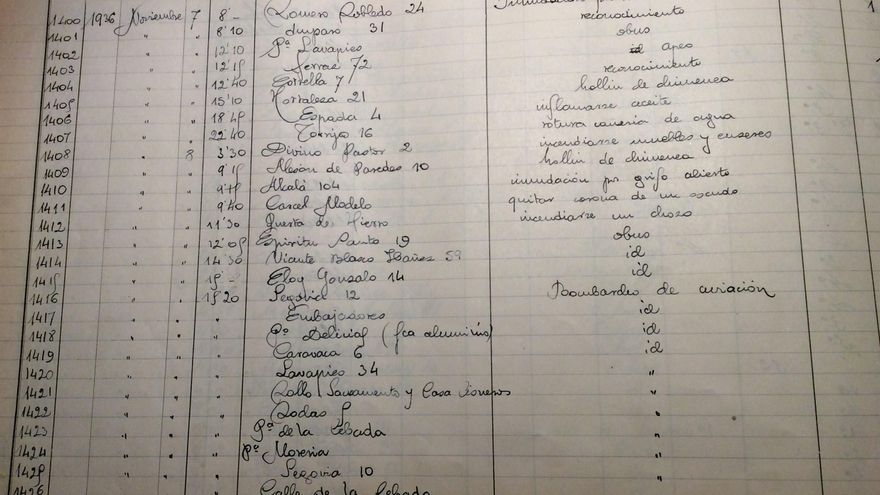 1400 1936 Noviembre 7 8'- Romero Robledo 24
1401 " " " 8'10 Amparo 31 reconocimiento
1402 " " 12'10 Pª Lavapies obus
1403 " " 12'15 Ferraz 72 id Apeo
1404 " " 12'40 Estrella 7 reconocimiento
1405 " " 15'10 Hortaleza 21 hollin de chimenea
1406 " " 18'45 Espada 4 inflamarse aceite
1407 " " 22'40 Torrijos 16 rotura cañeria de agua
1408 " 8 3'30 Divino Pastor 2 incendiarse muebles y enseres
1409 " " 9'15 Alcón de Paredes 10 hollin de chimenea
1410 " " 9'15 Alcalá 104 inundación por grifo abierto
1411 " " 9'40 Carcel Modelo quitar corona de un escudo
1412 " " 11'30 Puerta de Hierro incendiarse un chozo
1413 " " 12'05 Espiritu Santo 19 obus
1414 " " 14'30 Vicente Blasco Ibañez 59 id
1415 " " 15'- Eloy Gonzalo 14 id
1416 " " 15'20 Segovia 12 Bombardeo de aviación
1417 " " " Embajadores id
1418 " " " Pº Delicias (fca aluminio) id
1419 " " " Caravaca 6 id
1420 " " " Lavapies 34 "
1421 " " " Rollo Sacramento y Casa "
1422 " " " Rodas 5 "
1423 " " " Pª de la Cebada "
1424 " " " Pª Moreria "
1425 " " " Segovia 10 "
1426 Calle de la Cebada